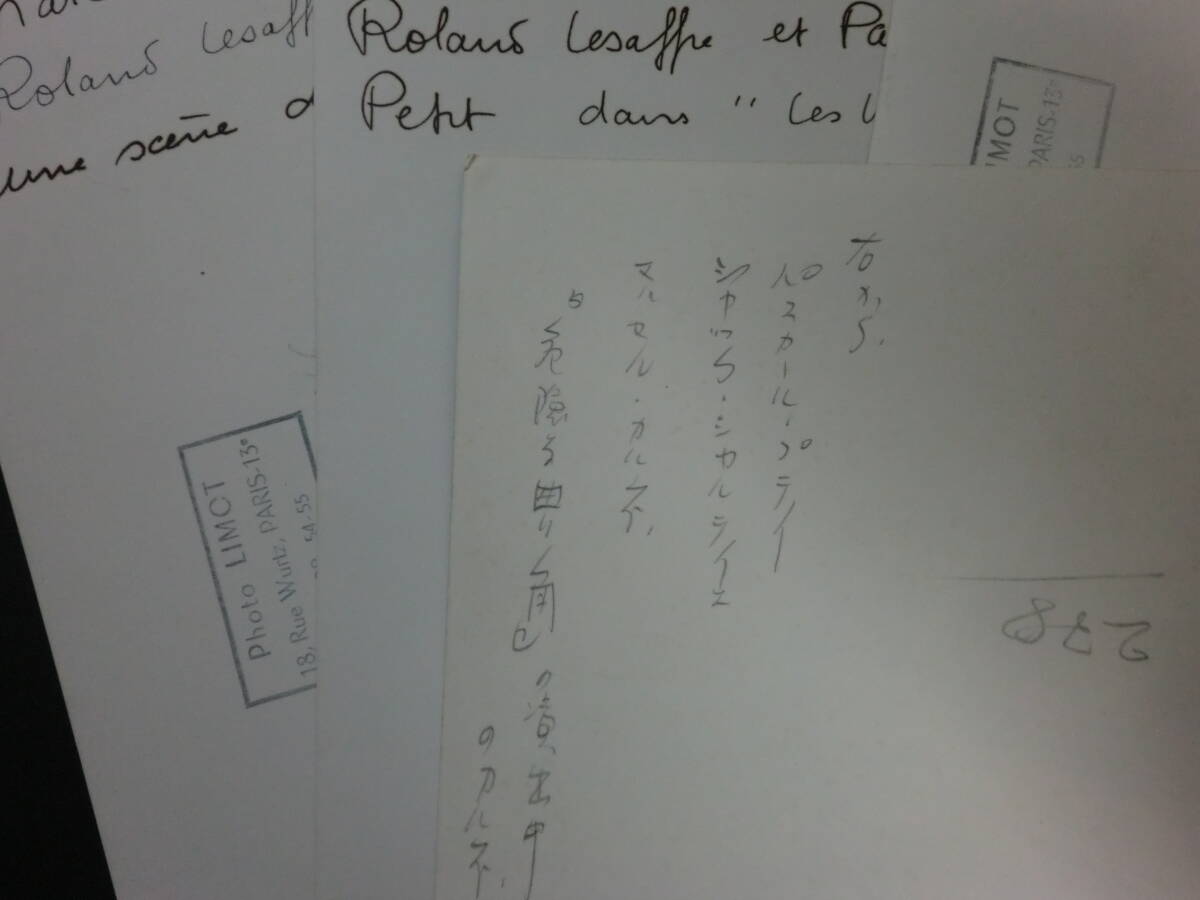 Roland Lesaff
une scène d
Roland Lesaffre et Pa
Petit dans " Les
IMOT
PARIS-13e
55
Photo LIMOT
18, Rue Wurtz, PARIS-13e
54-55
右から、
パスカール・プティー
ジャック・シャルティエ
マルセル・カルネ、
危険な曲り角の演出中
のカルネ、
278